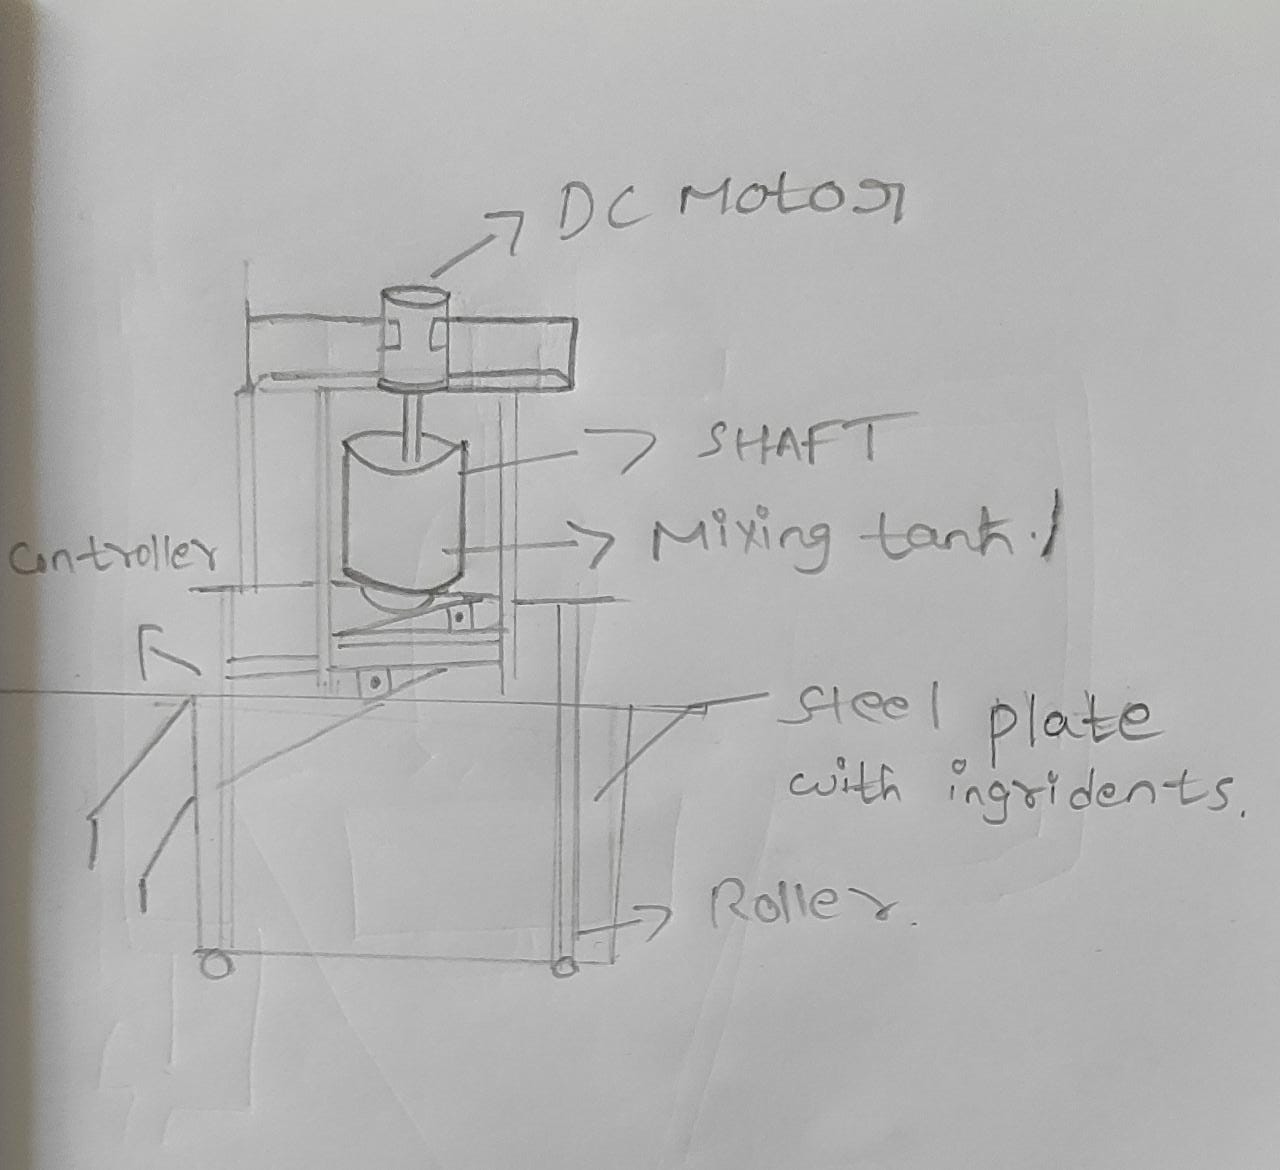 DC Motor
SHAFT
Mixing tank.
Controller
Steel plate
with ingridents.
Roller.